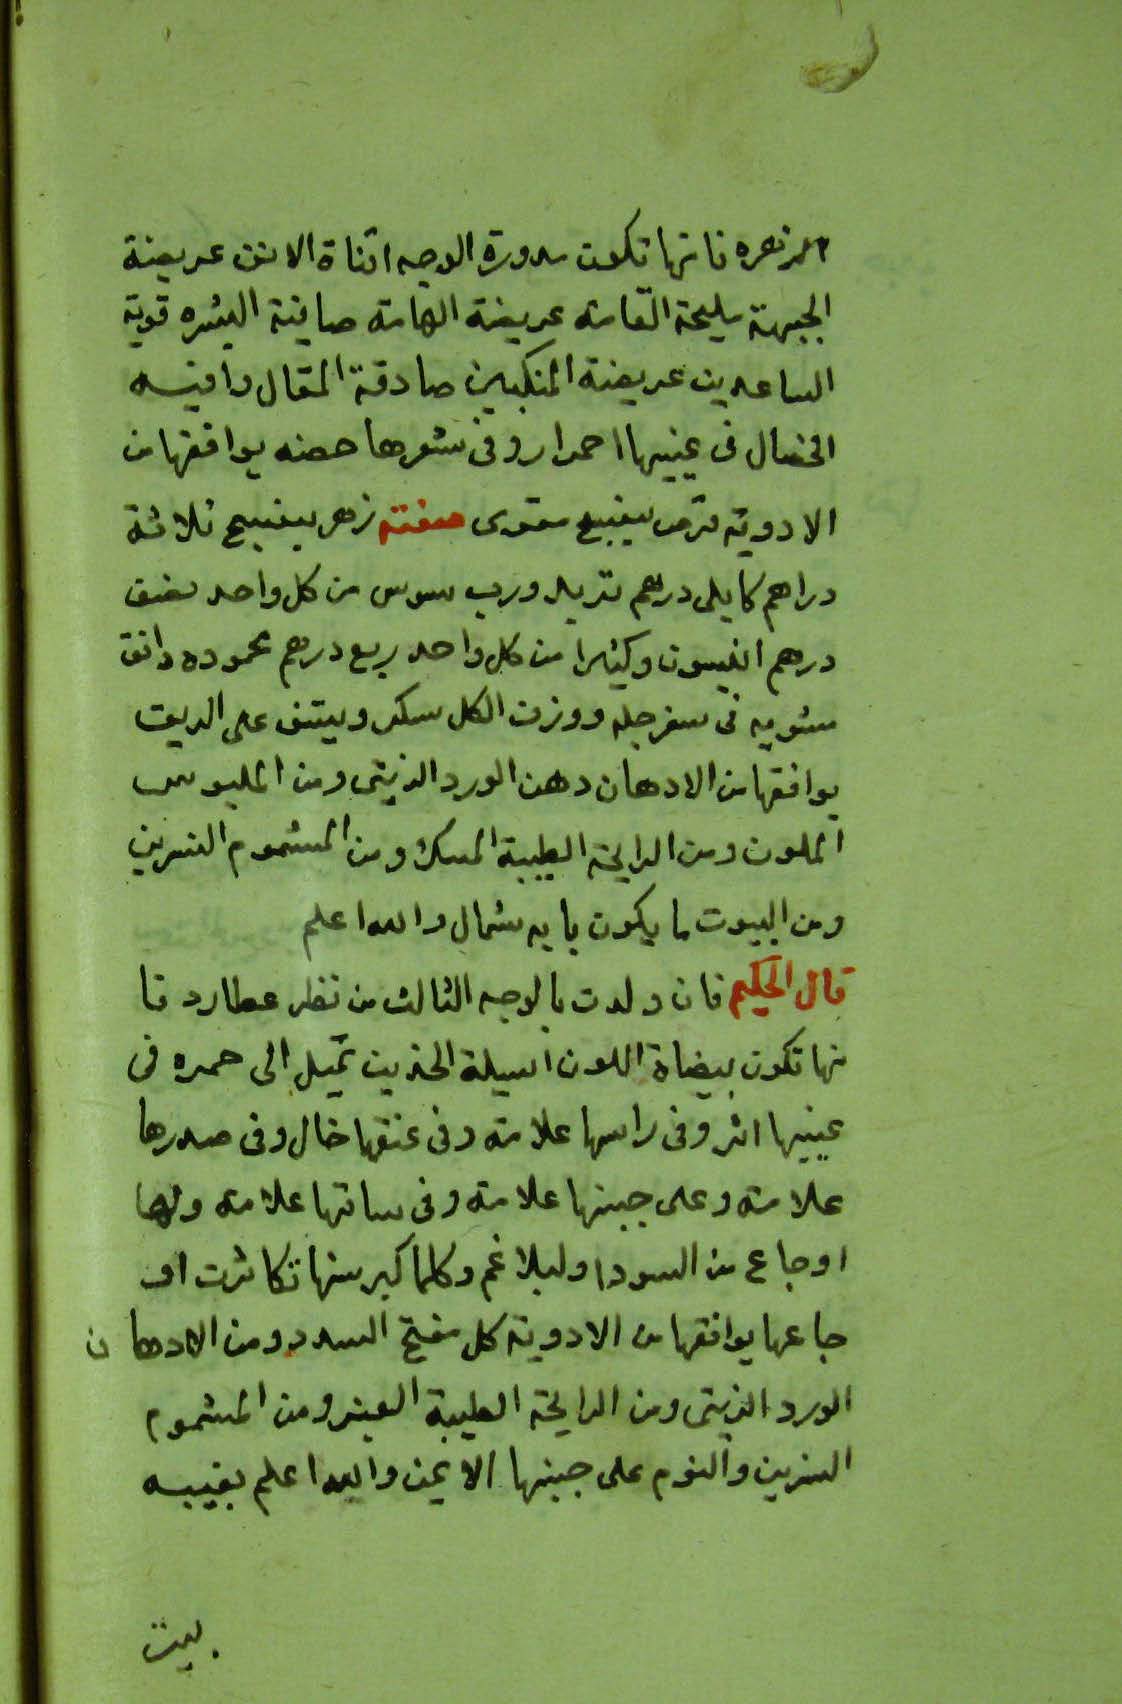 الزهره فانها تكون مدورة الوجه اقناة الانف عريضة
الجبهة مليحة القامة عريضة الهامة صافية البشره قوية
الساعدين عريضة المنكبين صادقة المقال وافيه
الخصال فى عينيها احمرار وفى شعرها حصنه يوافقها من
الادوية قرص بنفسج مقوى صفته زهر بنفسج ثلاثة
دراهم كابلى درهم تربد ورب سوس من كل واحد نصف
درهم انيسون وكثيرا من كل واحد ربع درهم محموده دانق
مشويه فى سفرجله ووزن الكل سكر ويستف على الريق
يوافقها من الادهان دهن الورد الزيتى ومن الملبوس
الملون ومن الرايحة الطيبة المسك ومن المشموم النسرين
ومن البيوت ما يكون بابه شمال والله اعلم
قال الحكيم فان ولدت بالوجه الثالث من نظر عطارد فا
نها تكون بيضاة اللون اسيلة الخدين تميل الى حمره فى
عينيها اثر وفى راسها علامة وفى عنقها خال وفى صدرها
علامة وعلى جبينها علامة وفى ساقها علامة ولها
اوجاع من السودا ولبلاغم وكلما كبر سنها تكاثرت او
جاعها يوافقها من الادوية كل مفتح السدد ومن الادهان
الورد الزيتى ومن الرايحة الطيبة العنبر ومن المشموم
النسرين والنوم على جنبها الايمن والله اعلم بغيبه
بيت